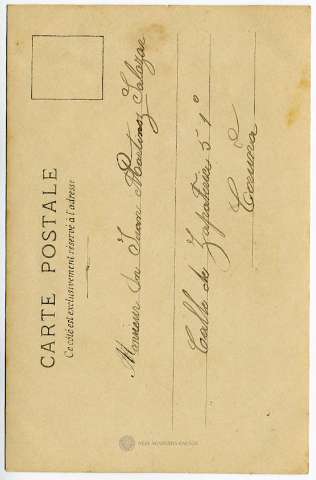 CARTE POSTALE
Ce côté est exclusivement réservé à l'adresse
Monsieur Don Juan Martinez Salazar
Calle de Zapateria 5 1º
Coruña
REAL ACADEMIA GALEGA